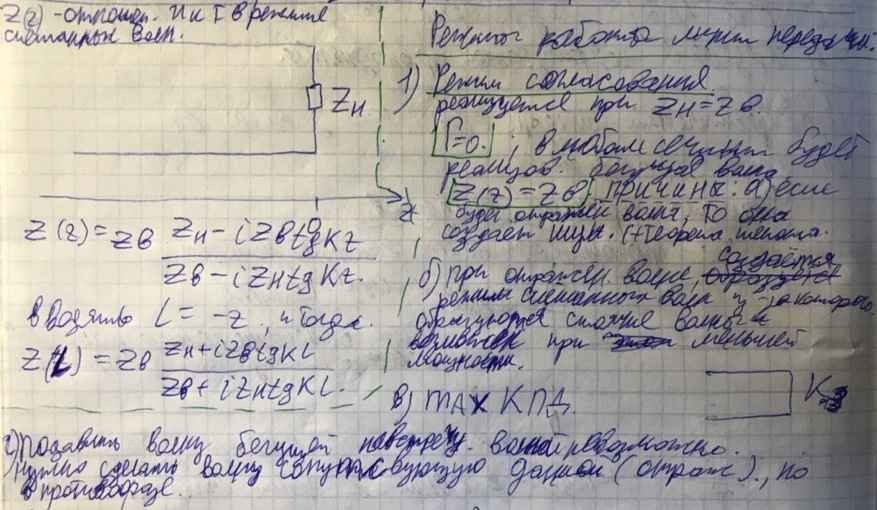 Z(z) - отношен. U к I в режиме
смешанных волн.
Zн
z
Z(z) = Zв (Zн - iZв tgKz) / (Zв - iZн tgKz).
вводят L = -z, тогда.
Z(L) = Zв (Zн + iZв tgKL) / (Zв + iZн tgKL).
Режимы работы линии передачи.
1) Режим согласования
реализуется при Zн = Zв.
Г=0. ; в любом сечении будет
реализов. бегущая волна
Z(z) = Zв причины: а) если
будет отражен волна, то она
создает шум. (+Теорема
б) при отражен волне, создаётся
режим смешанных волн из-за которого
образуются стоячие волны
при меньшей
мощности.
в) max КПД.
Кз
г) подавить волну бегущей навстречу волной невозможно.
нужно сделать волну сопутствующую данной (отраж)., но
в противофазе.